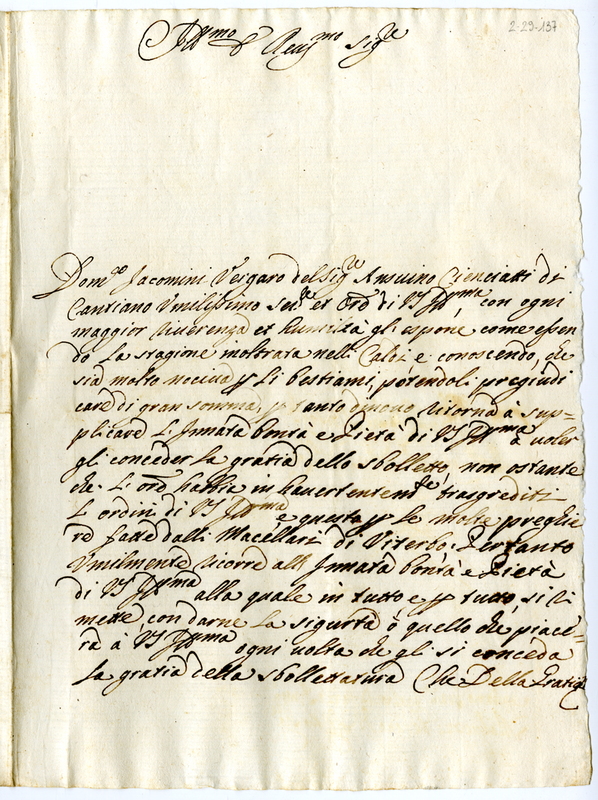 2-29-137
Ill.mo e Reu.mo Sig.re
Dom.co Jacomini Vergaro del Sig.re Ansuino Cienciatti di
Cantiano Vmilissimo Ser.e et Or.e di VS Ill.ma con ogni
maggior riuerenza et humiltà gli espone come essen
do la stagione inoltrata nelli Caldi, e conoscendo, che
sia molto nociua p li bestiami, potendoli pregiudi
care di gran somma, p tanto di nouo ritorna à sup=
plicare l'Innata bontà e Pietà di VS Ill.ma à uoler
gli conceder la gratia dello sbolletto, non ostante
che l'Or.e habbia in hauertentem.te trasgrediti
l'ordini di VS Ill.ma e questo p le molte preghie
re fatte dalli Macellari di Viterbo. Pertanto
Vmilmente ricorre all'Innata bontà e Pietà
di VS Ill.ma alla quale in tutto e p tutto, si ri
mette, con darne la sigurtà ò quello che piace=
rà à VS Ill.ma ogni uolta che gli si conceda
la gratia della sbollettatura Che Della Gratia